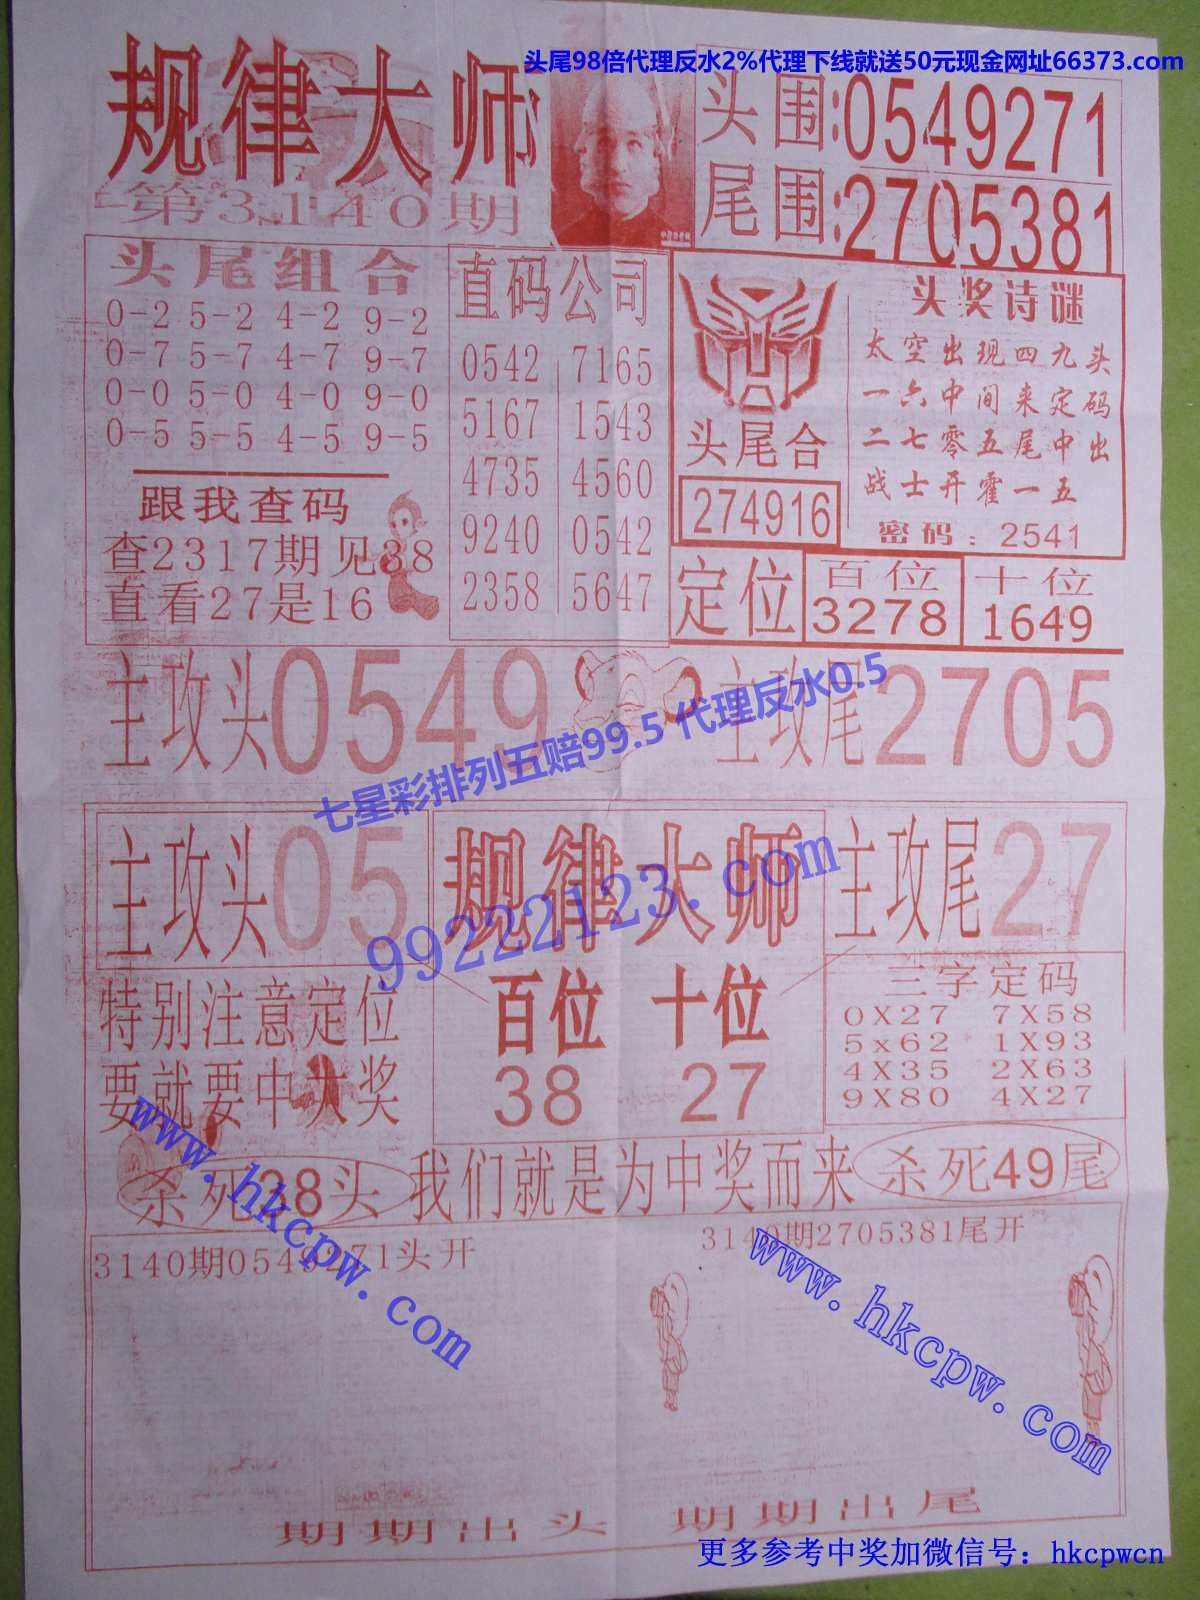 头尾98倍代理反水2%代理下线就送50元现金网址66373.com
规律大师
第3140期
头围:0549271
尾围:2705381
头尾组合
0-2 5-2 4-2 9-2
0-7 5-7 4-7 9-7
0-0 5-0 4-0 9-0
0-5 5-5 4-5 9-5
跟我查码
查2317期见38
直看27是16
直码公司
0542 7165
5167 1543
4735 4560
9240 0542
2358 5647
头尾合
274916
头奖诗谜
太空出现四九头
一六中间来定码
二七零五尾中出
战士开霍一五
密码:2541
定位
百位
3278
十位
1649
主攻头0549
主攻尾2705
七星彩排列五赔99.5 代理反水0.5
主攻头05
规律大师
主攻尾27
99222123.com
特别注意定位
要就要中大奖
百位 十位
38 27
三字定码
0X27 7X58
5x62 1X93
4X35 2X63
9X80 4X27
杀死38头
我们就是为中奖而来
杀死49尾
www.hkcpw.com
www.hkcpw.com
3140期0549271头开
3140期2705381尾开
期期出头 期期出尾
更多参考中奖加微信号：hkcpwcn